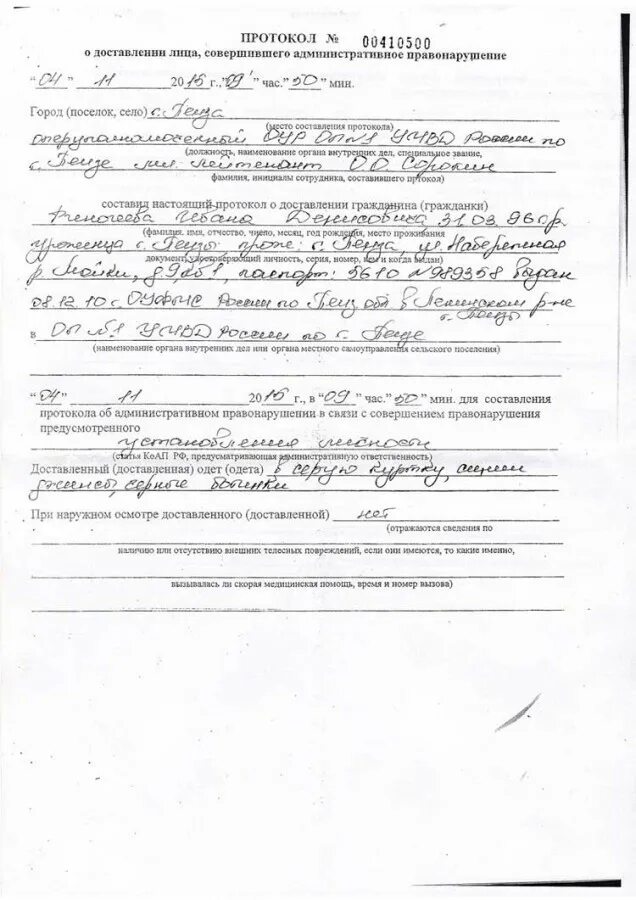 ПРОТОКОЛ № 00410500
о доставлении лица, совершившего административное правонарушение
"04" 11 2015 г., "09" час. "50" мин.
Город (поселок, село) г. Пенза
(место составления протокола)
оперуполномоченный ОУР ОП №1 УМВД России по
(должность, наименование органа внутренних дел, специальное звание,
г. Пензе мл. лейтенант О.О. Сорокин
фамилия, инициалы сотрудника, составившего пртокол)
составил настоящий протокол о доставлении гражданина (гражданки)
Ивана Денисовича 31.03.96 г.р.
(фамилия, имя, отчество, число, месяц, год рождения, место проживания
уроженца г. Пензы, прож: г. Пенза, ул. Набережная
документ, удостоверяющий личность, серия, номер, кем и когда выдан)
р. Мойки, д. 9, паспорт: 5610 №989358 выдан
08.12.10 г. ОУФМС России по Пенз. обл. в Ленинском р-не
г. Пензы
в ОП №1 УМВД России по г. Пензе
(наименование органа внутренних дел или органа местного самоуправления сельского поселения)
"04" 11 2015 г., в "09" час. "50" мин. для составления
протокола об административном правонарушении в связи с совершением правонарушения
предусмотренного
установления личности
(статья КоАП РФ, предусматривающая административную ответственность)
Доставленный (доставленная) одет (одета) в серую куртку, синии
джинсы, черные ботинки
При наружном осмотре доставленного (доставленной) нет
(отражаются сведения по
наличию или отсутствию внешних телесных повреждений, если они имеются, то какие именно,
вызывалась ли скорая медицинская помощь, время и номер вызова)